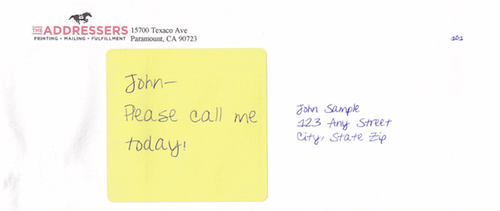 THE ADDRESSERS
PRINTING • MAILING • FULFILLMENT
15700 Texaco Ave
Paramount, CA 90723
John—
Please call me
today!
John Sample
123 Any Street
City, State Zip